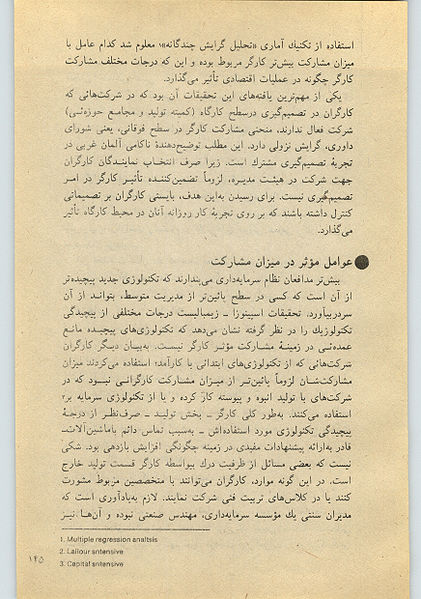 استفاده از تکنیك آماری «تحلیل گرایش چندگانه»۱ معلوم شد کدام عامل با
میزان مشارکت بیش‌تر کارگر مربوط بوده و این که درجات مختلف مشارکت
کارگر چگونه در عملیات اقتصادی تأثیر می‌گذارد.
یکی از مهم‌ترین یافته‌های این تحقیقات آن بود که در شرکت‌هائی که
کارگران در تصمیم‌گیری درسطح کارگاه (کمیته تولید و مجامع حوزه‌ئی)
شرکت فعال ندارند، منحنی مشارکت کارگر در سطح فوقانی، یعنی شورای
داوری، گرایش نزولی دارد. این مطلب توضیح‌دهندهٔ ناکامی آلمان غربی در
تجربهٔ تصمیم‌گیری مشترك است. زیرا صرف انتخاب نماینـدگان کارگران
جهت شرکت در هیئت مدیـره، لزوماً تضمین‌کننـده تأثیـر کارگر در امـر
تصمیم‌گیری نیست. برای رسیدن به‌این هدف، بایستی کارگران بر تصمیماتی
کنترل داشته باشند که بر روی تجربهٔ کار روزانه آنان در محیط کارگاه تأثیر
می‌گذارد.
عوامل مؤثر در میزان مشارکت
بیش‌تر مدافعان نظام سرمایه‌داری می‌پندارند که تکنولوژی جدید پیچیده‌تر
از آن است که کسی در سطح پائین‌تر از مدیریت متوسط، بتوانـد از آن
سردربیآورد. تحقیقات اسپینوزا ـ زیمبالیست درجات مختلفی از پیچیدگی
تکنولوژیك را در نظر گرفته نشان می‌دهد که تکنولوژی‌های پیچیـده مانـع
عمده‌ئـی در زمینهٔ مشـارکت مؤثـر کارگر نیسـت. به‌بیـان دیگـر کارگران
شرکت‌هائی که از تکنولوژی‌های ابتدائی یا کارآمد۲ استفاده می‌کردند میزان
مشارکت‌شـان لزوماً پائین‌تـر از میـزان مشـارکت کارگرانـی نبـود که در
شرکت‌های با تولید انبوه و پیوسته کار کرده و یا از تکنولوژی سرمایه بر۳
استفاده می‌کنند. به‌طور کلی کارگر ـ بخش تولیـد ـ صرف‌نظـر از درجـهٔ
پیچیدگی تکنولوژی مورد استفاده‌اش ـ به‌سبب تماس دائم باماشین‌آلات‌ـ
قادر به‌ارائه پیشنهادات مفیدی در زمینه چگونگی افزایش بازدهی بود. شکی
نیست که بعضی مسائل از ظرفیت درك بیواسطه کارگر قسمت تولید خارج
است. در این گونه موارد، کارگران می‌توانند با متخصصین مربوط مشورت
کنند یا در کلاس‌های تربیت فنی شرکت نمایند. لازم به‌یادآوری است که
مدیران سنتی یك مؤسسه سرمایه‌داری، مهندس صنعتی نبوده و آن‌ها نیـز
1. Multiple regression analtsis
2. Lailour sntensive
3. Capital sntensive
۱۴۵